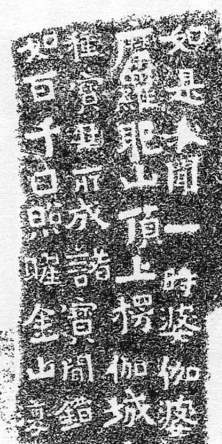 如是我聞一時婆伽婆
摩羅耶山頂上楞伽城
種寶性所成諸寶間錯
如百千日照曜金山復